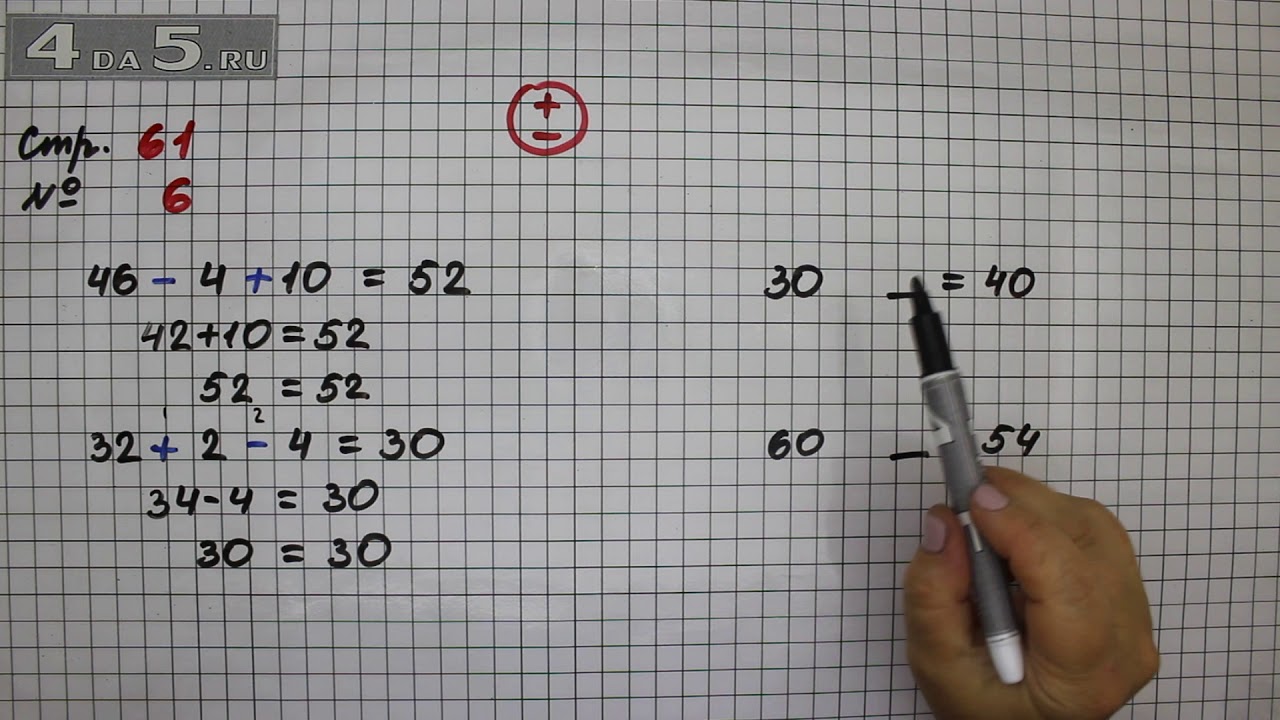 4DA5.RU
+
−
Стр. 61
№ 6
46 - 4 + 10 = 52
42+10=52
52 = 52
1 2
32 + 2 - 4 = 30
34-4 = 30
30 = 30
30 _ = 40
60 _ 54